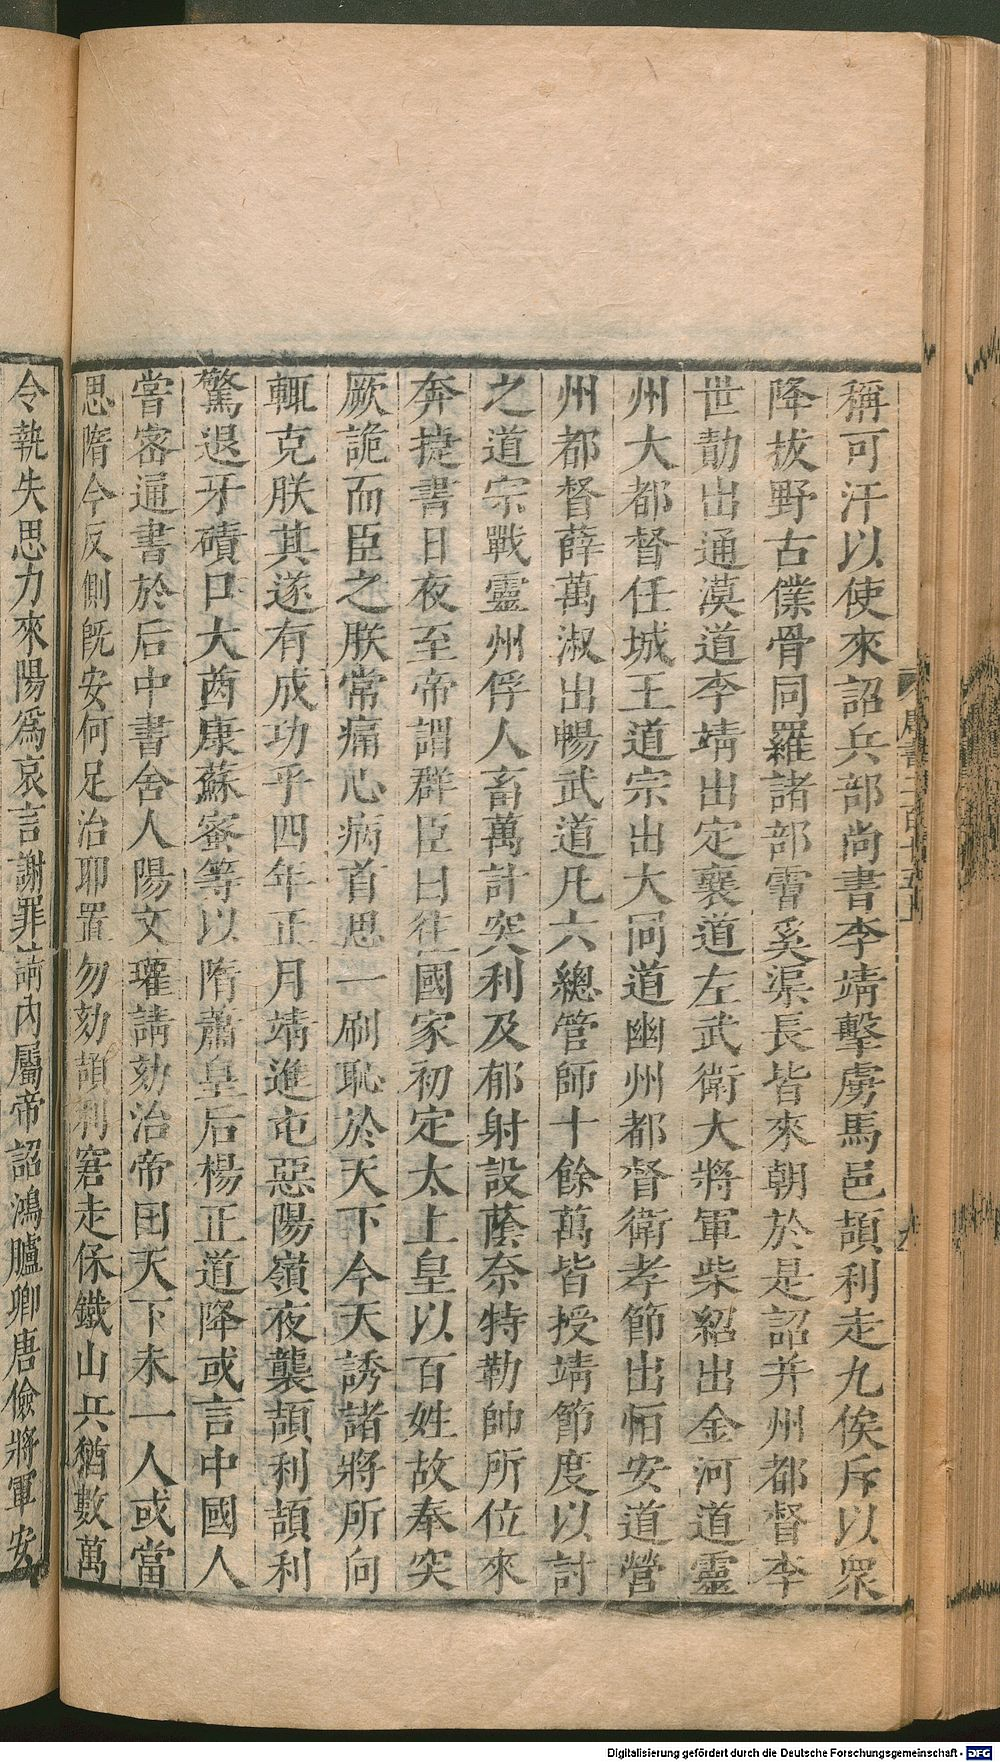 稱可汗以使來詔兵部尚書李靖擊虜馬邑頡利走九俟斤以眾
降拔野古僕骨同羅諸部霫奚渠長皆來朝於是詔并州都督李
世勣出通漠道李靖出定襄道左武衛大將軍柴紹出金河道靈
州大都督任城王道宗出大同道幽州都督衛孝節出恒安道營
州都督薛萬淑出暢武道凡六總管師十餘萬皆授靖節度以討
之道宗戰靈州俘人畜萬計突利及郁射設蔭奈特勒帥所位來
奔捷書日夜至帝謂群臣曰往國家初定太上皇以百姓故奉突
厥詭而臣之朕常痛心病首思一刷恥於天下今天誘諸將所向
輒克朕其遂有成功乎四年正月靖進屯惡陽嶺夜襲頡利頡利
驚退牙磧口大酋康蘇蜜等以隋蕭皇后楊正道降或言中國人
嘗密通書於后中書舍人陽文瓘請劾治帝曰天下未一人或當
思隋今反側既安何足治耶置勿劾頡利窘走保鐵山兵猶數萬
令執失思力來陽為哀言謝罪請內屬帝詔鴻臚卿唐儉將軍安
Digitalisierung gefördert durch die Deutsche Forschungsgemeinschaft - DFG